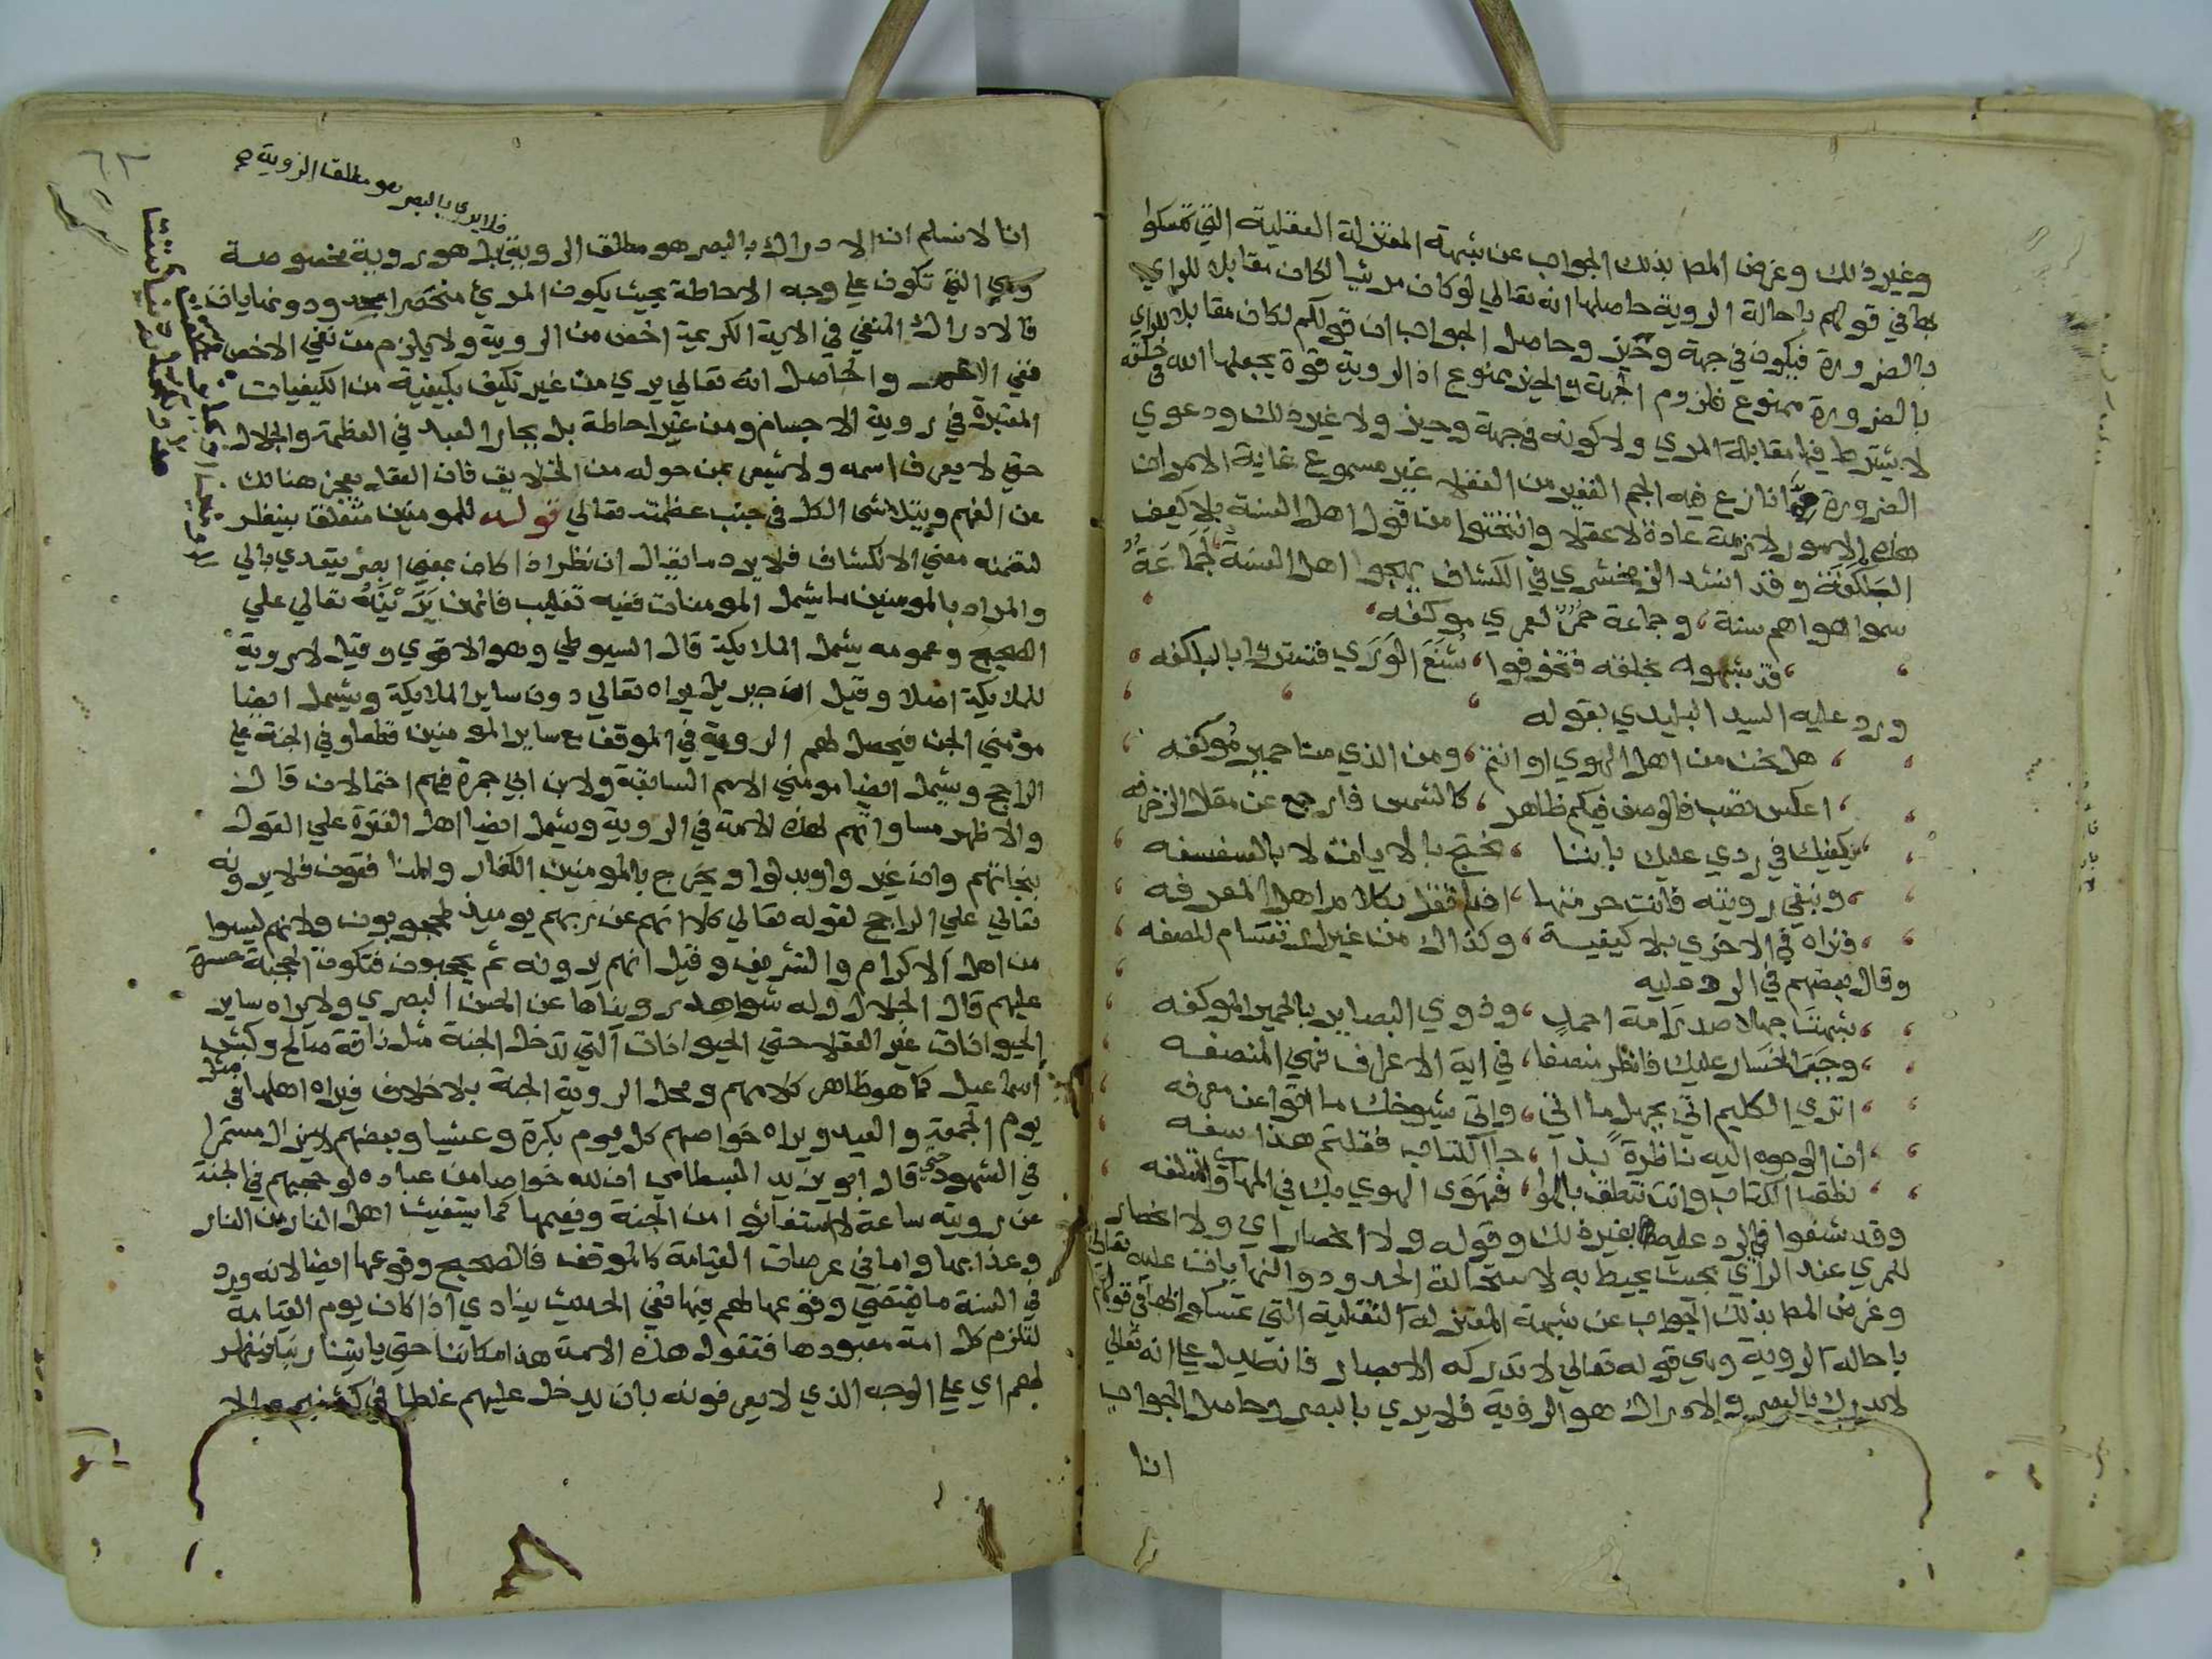 وغير ذلك وغرض المص بذلك الجواب عن شبهة المعتزلة العقلية التي تمسكوا
بها في قولهم باحالة الروية حاصلها انه تعالي لو كان مرئيا لكان مقابلا للراي
بالضرورة فيكون في جهة وحيز وحاصل الجواب ان قولكم لكان مقابلا للراي
بالضرورة ممنوع فلزوم الجهة والحيز ممنوع اذ الروية قوة يجعلها الله في خلقه
لا يشترط فيها مقابلة المري ولا كونه في جهة وحيز ولا غير ذلك ودعوي
الضرورة فيما نازع فيه الجم الغفير من العقلا غير مسموع غاية الامر ان
هذه الامور لازمة عادة لا عقلا وانتحتوا من قول اهل السنة بلا كيف
البلكفة وقد انشد الزمخشري في الكشاف يهجوا اهل السنة لجماعة
سموا هواهم سنة ، وجماعة حمر لعمري موكفه
قد شبهوه بخلقه فتخوفوا ، شنع الوري فتستروا بالبلكفه
ورد عليه السيد البليدي بقوله
هل نحن من اهل الهوي او انتم ، ومن الذي منا حمير موكفه
اعكس تصب فالوصف فيكم ظاهر ، كالشمس فارجع عن مقال الزخرفه
يكفيك في ردي عليك باننا ، نحتج بالايات لا بالسفسفه
وبنفي رويته فانت حرمتها ، ان لم تقل بكلام اهل المعرفه
فنراه في الاخري بلا كيفية ، وكذاك من غير ارتسام للصفه
وقال بعضهم في الرد عليه
شبهت جهلا صدر امة احمد ، وذوي البصاير بالحمير الموكفه
وجب الخسار عليك فانظر منصفا ، في اية الاعراف فهي المنصفه
اتري الكليم اتي بجهل ما اتي ، واتي شيوخك ما اتوا عن معرفه
ان الوجوه اليه ناظرة بذا ، جا الكتاب فقلتم هذا سفه
نطق الكتاب وانت تنطق بالهوا ، فهوي الهوي بك في المهاوي المتلفه
وقد شنعوا في الرد عليه بغير ذلك وقوله ولا انحصار اي ولا انحصار
للمري عند الراي بحيث يحيط به لاستحالة الحدود والنهايات عليه تعالي
وغرض المص بذلك الجواب عن شبهة المعتزلة النقلية التي تمسكوا بها في قولهم
باحالة الروية وهي قوله تعالي لا تدركه الابصار فانه يدل علي انه تعالي
لا يدرك بالبصر والادراك هو الروية فلا يري بالبصر وحاصل الجواب
انا
فلا يري بالبصر هو مطلقا الروية
انا لا نسلم ان الادراك بالبصر هو مطلق الروية بل هو روية مخصوصة
وهي التي تكون علي وجه الاحاطة بحيث يكون المري منحصرا بحدود ونهايات
فالادراك المنفي في الاية الكريمة اخص من الروية ولا يلزم من نفي الاخص
نفي الاعم والحاصل انه تعالي يري من غير تكيف بكيفية من الكيفيات
المعتبرة في روية الاجسام ومن غير احاطة بل يحار العبد في العظمة والجلال
حتي لا يعرف اسمه ولا يشعر بمن حوله من الخلايق فان العقل يعجز هنالك
عن الفهم ويتلاشي الكل في جنب عظمته تعالي قوله للمومنين متعلق بينظر
لتضمنه معني الانكشاف فلا يرد ما يقال ان نظر اذا كان بمعني ابصر يتعدي بالي
والمراد بالمومنين ما يشمل المومنات ففيه تغليب فانهن يرينه تعالي علي
الصحيح وعمومه يشمل الملايكة قال السيوطي وهو الاقوي وقيل لا روية
للملايكة اصلا وقيل ان جبريل يراه تعالي دون ساير الملايكة ويشمل ايضا
مؤمني الجن فيحصل لهم الروية في الموقف مع ساير المومنين قطعا وفي الجنة علي
الراجح ويشمل ايضا مومني الامم السابقة ولابن ابي جمرة فيهم احتمالان قال
والاظهر مساواتهم لهذه الامة في الروية ويشمل ايضا اهل الفترة علي القول
بنجاتهم وان غيروا وبدلوا ويخرج بالمومنين الكفار والمنافقون فلا يرونه
تعالي علي الراجح لقوله تعالي كلا انهم عن ربهم يوميذ لمحجوبون ولانهم ليسوا
من اهل الاكرام والتشريف وقيل انهم يرونه ثم يحجبون فتكون الحجبة حسرة
عليهم قال الجلال وله شواهد رويناها عن الحسن البصري ولا يراه ساير
الحيوانات غير العقلا حتي الحيوانات التي تدخل الجنة مثل ناقة صالح وكبش
اسماعيل كما هو ظاهر كلامهم ومحل الروية الجنة بلا خلاف فيراه اهلها في مثل
يوم الجمعة والعيد ويراه خواصهم كل يوم بكرة وعشيا وبعضهم لا يزال مستمرا
في الشهود حتي قال ابو يزيد البسطامي ان لله خواصا من عباده لو حجبهم في الجنة
عن رويته ساعة لاستغاثوا من الجنة ونعيمها كما يستغيث اهل النار من النار
وعذابها واما في عرصات القيامة كالموقف فالصحيح وقوعها ايضا لانه ورد
في السنة ما يقتضي وقوعها لهم فيها ففي الحديث ينادي اذا كان يوم القيامة
لتلزم كل امة معبودها فتقول هذه الامة هذا مكاننا حتي ياتينا ربنا فيظهر
لهم اي علي الوجه الذي لا يعرفونه بان يدخل عليهم غلطا في كشفهم والا